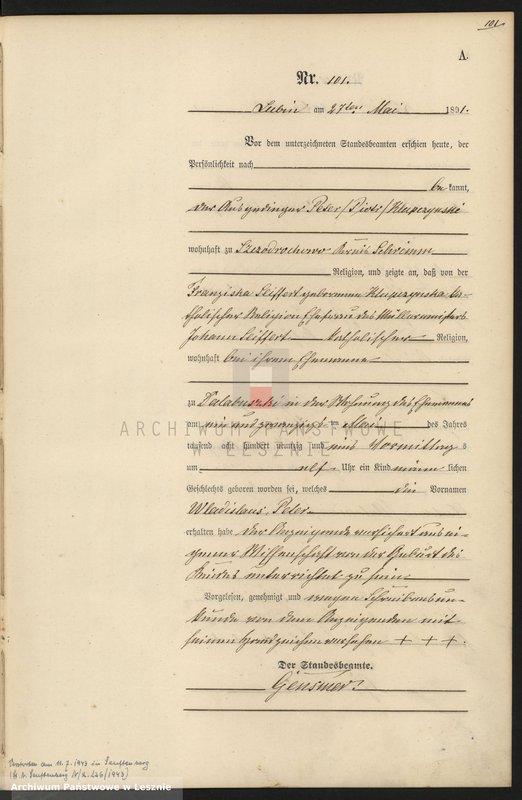 101.
A.
Nr. 101.
Lubin am 27ten Mai 1891.
Vor dem unterzeichneten Standesbeamten erschien heute, der
Persönlichkeit nach
be kannt,
der Ausgedinger Peter /Piotr/ Klupczynski
wohnhaft zu Szezodrochowo Kreis Schrimm
Religion, und zeigte an, daß von der
Franziska Seiffert geborenen Klupczynska ka-
tholischer Religion Ehefrau des Müllermeisters
Johann Seiffert katholischer Religion,
wohnhaft bei ihrem Ehemanne
zu Dalabuszki in der Wohnung des Ehemannes
am ein und zwanzigsten Mai des Jahres
tausend acht hundert neunzig und eins Vormittag s
um elf Uhr ein Kind männ lichen
Geschlechts geboren worden sei, welches die Vornamen
Wladislaus Peter
erhalten habe der Anzeigende versichert aus ei-
gener Wissenschaft von der Geburt des
Kindes unterrichtet zu sein
Vorgelesen, genehmigt und wegen Schreibensun-
kunde von dem Anzeigenden mit
seinen Handzeichen versehen + + +.
Der Standesbeamte.
Gensmer
ARCHIWUM PAŃSTWOWE
W LESZNIE
Verstorben am 11.7.1943 in Senftenberg
(St. A. Senftenberg Nr. 226/1943)
Archiwum Państwowe w Lesznie